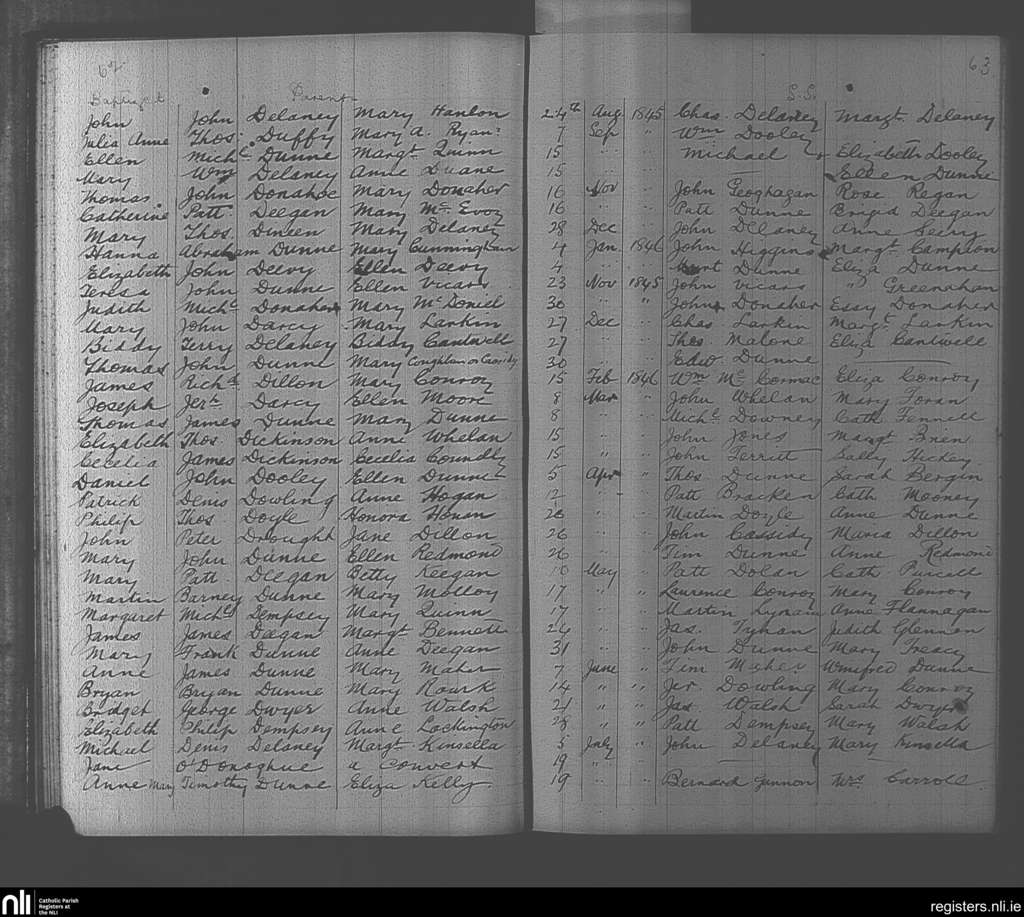 62 63
Baptized Parents S.S.
John John Delaney Mary Hanlon 24th Aug 1845 Chas. Delaney Margt. Delaney
Julia Anne Thos. Duffy Mary A. Ryan 7 Sep " Wm Dooley
Ellen Michl. Dunne Margt. Quinn 15 " " Michael & Elizabeth Dooley
Mary Wm Delaney Anne Duane 15 — Ellen Dunne
Thomas John Donahoe Mary Donaher 16 Nov " John Geoghagan Rose Regan
Catherine Patt. Deegan Mary McEvoy 16 " " Patt Dunne Brigid Deegan
Mary Thos. Dineen Mary Delaney 28 Dec " John Delaney Anne
Hanna Abraham Dunne Mary Cunningham 4 Jan. 1846 John Higgins Margt. Campion
Elizabeth John Deevy Ellen Deevy 4 " " Dunne Eliza Dunne
Teresa John Dunne Ellen Vicars 23 Nov 1845 John Vicars " Greenahan
Judith Michl. Donaher Mary McDaniel 30 " " John Donaher Essy Donaher
Mary John Darcy Mary Larkin 27 Dec " Chas. Larkin Margt. Larkin
Biddy Terry Delaney Biddy Cantwell 27 " " Thos. Malone Eliza Cantwell
Thomas John Dunne Mary Coughlan or Cassidy 30 " " Edw. Dunne —
James Richd. Dillon Mary Conroy 15 Feb 1846 Wm McCormac Eliza Conroy
Joseph Jerh. Darcy Ellen Moore 8 Mar " John Whelan Mary Foran
Thomas James Dunne Mary Dunne 8 " " Michl. Downey Cath Fennell
Elizabeth Thos. Dickinson Anne Whelan 15 " " John Jones Margt Brien
Cecelia James Dickinson Cecelia Connolly 15 " " John Territt Sally Hickey
Daniel John Dooley Ellen Dunne 5 Apr " Thos Dunne Sarah Bergin
Patrick Denis Dowling Anne Hogan 12 " " Patt Bracken Cath Mooney
Philip Thos Doyle Honora Honan 26 " " Martin Doyle Anne Dunne
John Peter Drought Jane Dillon 26 " " John Cassidy Maria Dillon
Mary John Dunne Ellen Redmond 26 " " Tim Dunne Anne Redmond
Mary Patt. Deegan Betty Keegan 10 May " Patt Dolan Cath Purcell
Martin Barney Dunne Mary Molloy 17 " " Laurence Conroy Mary Conroy
Margaret Michl Dempsey Mary Quinn 17 " " Martin Lynam Anne Flannagan
James James Deegan Margt Bennett 24 " " Jas. Tynan Judith Glennon
Mary Frank Dunne Anne Deegan 31 " " John Dunne Mary Treacy
Anne James Dunne Mary Maher 7 June " Tim Meher Winifred Dunne
Bryan Bryan Dunne Mary Rourk 14 " " Jer. Dowling Mary Conroy
Bridget George Dwyer Anne Walsh 21 " " Jas Walsh Sarah Dwyer
Elizabeth Philip Dempsey Anne Lockington 28 " " Patt Dempsey Mary Walsh
Michael Denis Delaney Margt. Kinsella 5 July " John Delaney Mary Kinsella
Jane O'Donoghue a convert 19 " " — —
Anne Mary Timothy Dunne Eliza Kelly 19 " Bernard Gannon Mrs Carroll
nli Catholic Parish Registers at the NLI registers.nli.ie